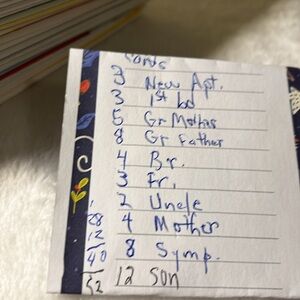 Cards
3 New Apt.
3 1st bd
5 Gr Mothrs
8 Gr Father
4 Br.
3 Fr.
2 Uncle
4 Mother
8 Symp.
12 son
28
12
40
52